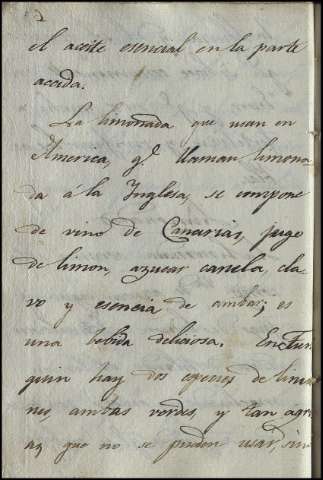 el aceite esencial en la parte
acida.
La limonada que usan en
America, q.e llaman limona
da á la Inglesa, se compone
de vino de Canarias, jugo
de limon, azucar canela, cla
vo y esencia de ambar; es
una bebida deliciosa. En Tun
quin hay dos especies de limo
nes, ambas verdes, y tan agri
as, que no se pueden usar, sin